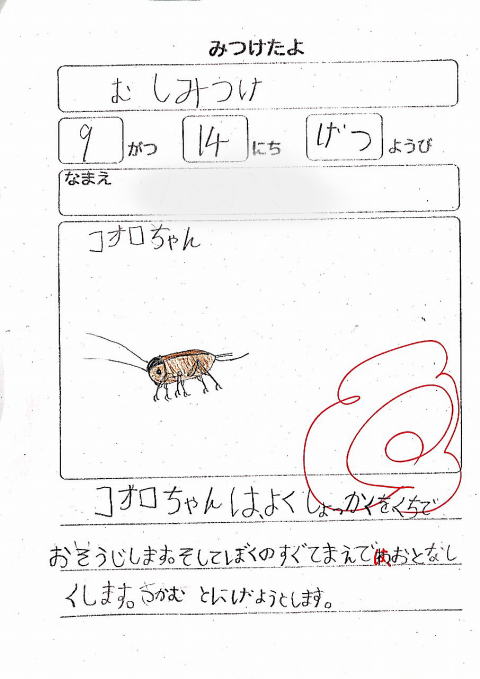 みつけたよ
むしみつけ
9 がつ 14 にち げつ ようび
なまえ
コオロちゃん
コオロちゃんは、よくしょっかくをくちで
おそうじします。そしてぼくのすぐてまえでは、おとなし
くします。さかむとにげようとします。